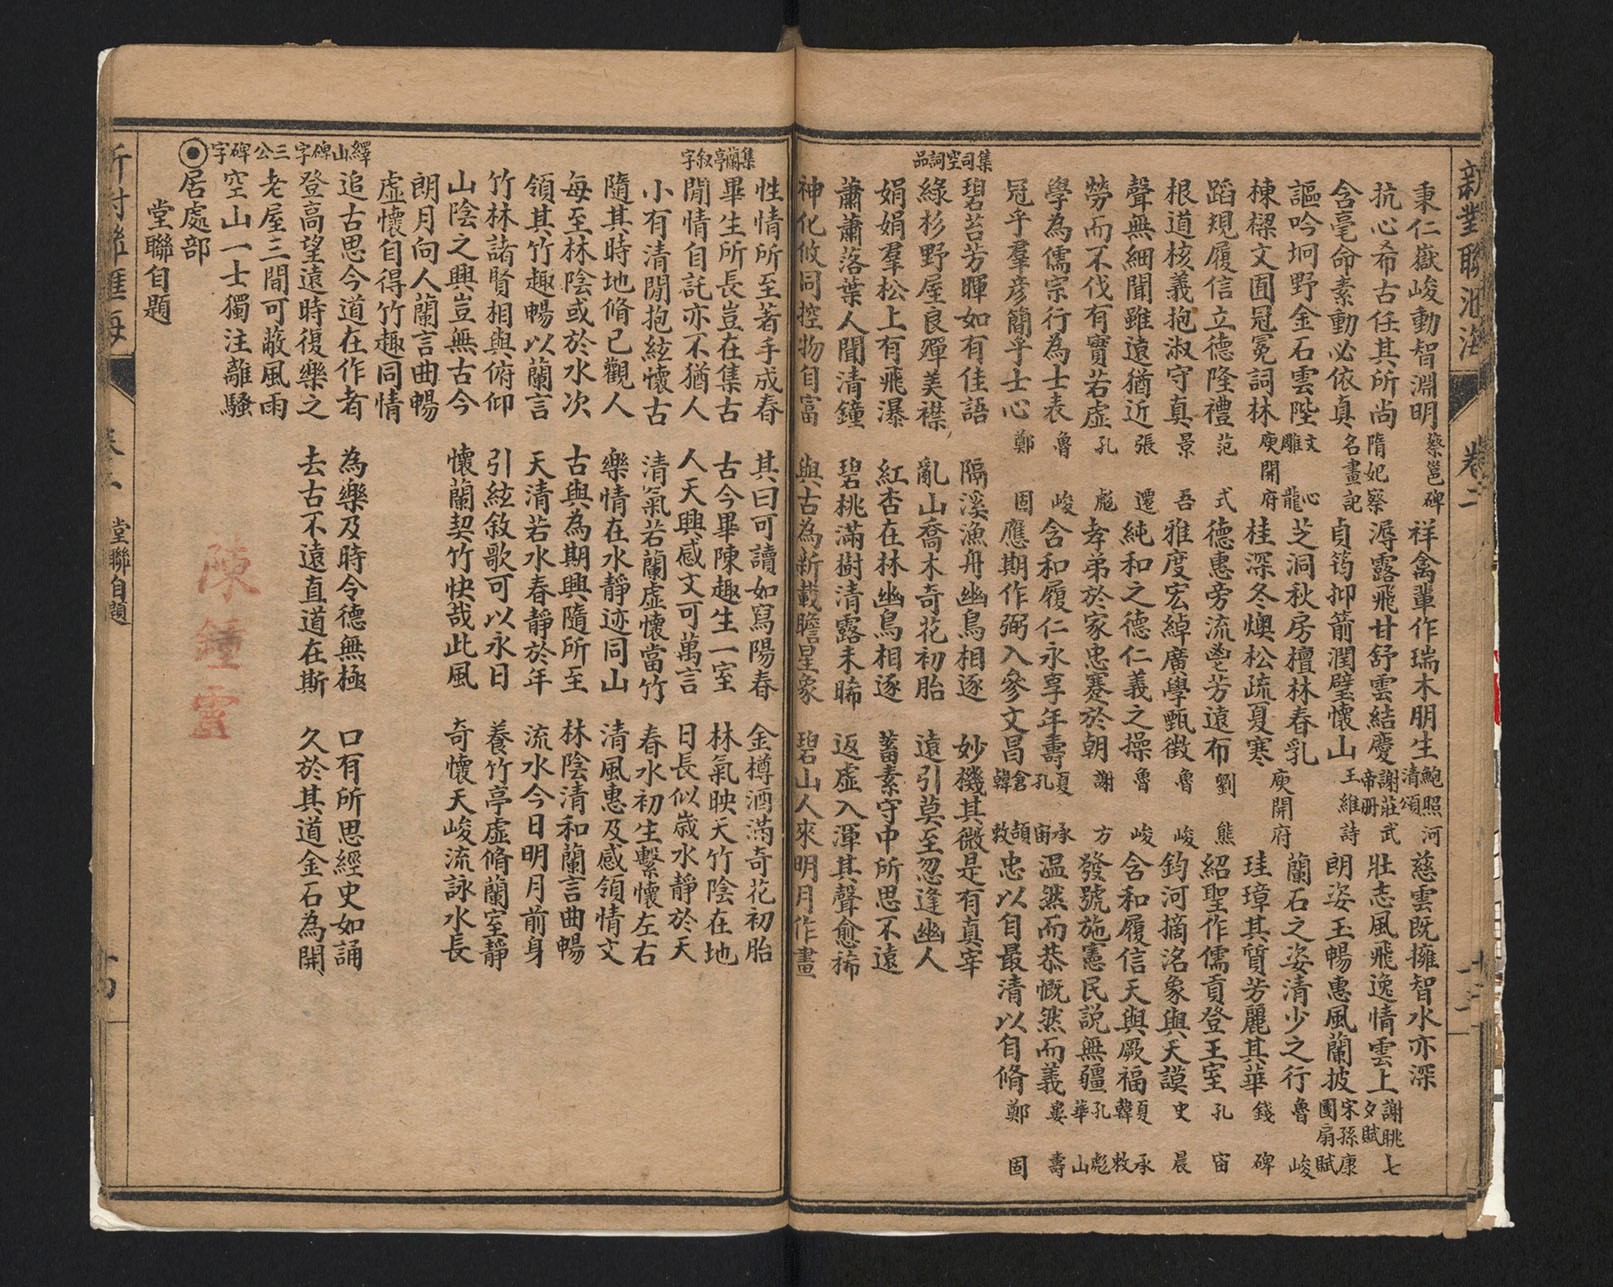 新對聯滙海 卷二 十三
秉仁嶽峻動智淵明 蔡邕碑 祥禽輩作瑞木朋生 鮑照河清頌 慈雲既擁智水亦深
抗心希古任其所尚 隋妃察 潯露飛甘舒雲結慶 謝莊武帝冊 壯志風飛逸情雲上 謝朓七夕賦
含毫命素動必依真 名畫記 貞筠抑箭潤璧懷山 王維詩 朗姿玉暢惠風蘭披 宋孫康團扇賦
謳吟坰野金石雲陛 文心雕龍 芝洞秋房檀林春乳 蘭石之姿清少之行 魯峻
棟樑文囿冠冕詞林 庾開府 桂深冬燠松疏夏寒 庾開府 珪璋其質芳麗其華 錢碑
蹈規履信立德隆禮 范式 德惠旁流芳遠布 劉熊 紹聖作儒貢登王室 孔宙
根道核義抱淑守真 景吾 雅度宏綽廣學甄微 魯峻 鈞河摘洛象與天謨 史晨
聲無細聞雖遠猶近 張遷 純和之德仁義之操 魯峻 含和履信天與厥福 夏承韓敕
勞而不伐有實若虛 孔彪 孝弟於家忠蹇於朝 謝方 發號施憲民説無疆 孔彪華山
學為儒宗行為士表 魯峻 含和履仁永享年壽 夏承孔宙 温然而恭慨然而義 婁壽
冠乎羣彦簡乎士心 鄭固 應期作弼入參文昌 倉頡韓敕 忠以自最清以自脩 鄭固
集司空詞品
碧苔芳暉如有佳語 隔溪漁舟幽鳥相逐 妙機其微是有真宰
綠杉野屋良殫美襟 亂山喬木奇花初胎 遠引莫至忽逢幽人
娟娟羣松上有飛瀑 紅杏在林幽鳥相逐 蓄素守中所思不遠
蕭蕭落葉人聞清鐘 碧桃滿樹清露未晞 返虛入渾其聲愈稀
神化攸同控物自富 與古為新載瞻星象 碧山人來明月作畫
集蘭亭叙字
性情所至著手成春 其曰可讀如寫陽春 金樽酒滿奇花初胎
畢生所長豈在集古 古今畢陳趣生一室 林氣映天竹陰在地
閒情自託亦不猶人 人天興感文可萬言 日長似歲水靜於天
小有清閒抱絃懷古 清氣若蘭虛懷當竹 春水初生繫懷左右
隨其時地脩已觀人 樂情在水靜迹同山 清風惠及感領情文
每至林陰或於水次 古與為期興隨所至 林陰清和蘭言曲暢
領其竹趣暢以蘭言 天清若水春靜於年 流水今日明月前身
竹林諸賢相與俯仰 引絃敘歌可以永日 養竹亭虛脩蘭室靜
山陰之興豈無古今 懷蘭契竹快哉此風 奇懷天峻流詠水長
朗月向人蘭言曲暢
虛懷自得竹趣同情
繹山碑字
追古思今道在作者 為樂及時令德無極 口有所思經史如誦
登高望遠時復樂之 去古不遠直道在斯 久於其道金石為開
三公碑字
老屋三間可蔽風雨
空山一士獨注離騷
居處部
堂聯自題
陳鍾靈
新對聯滙海 卷二 堂聯自題 十四